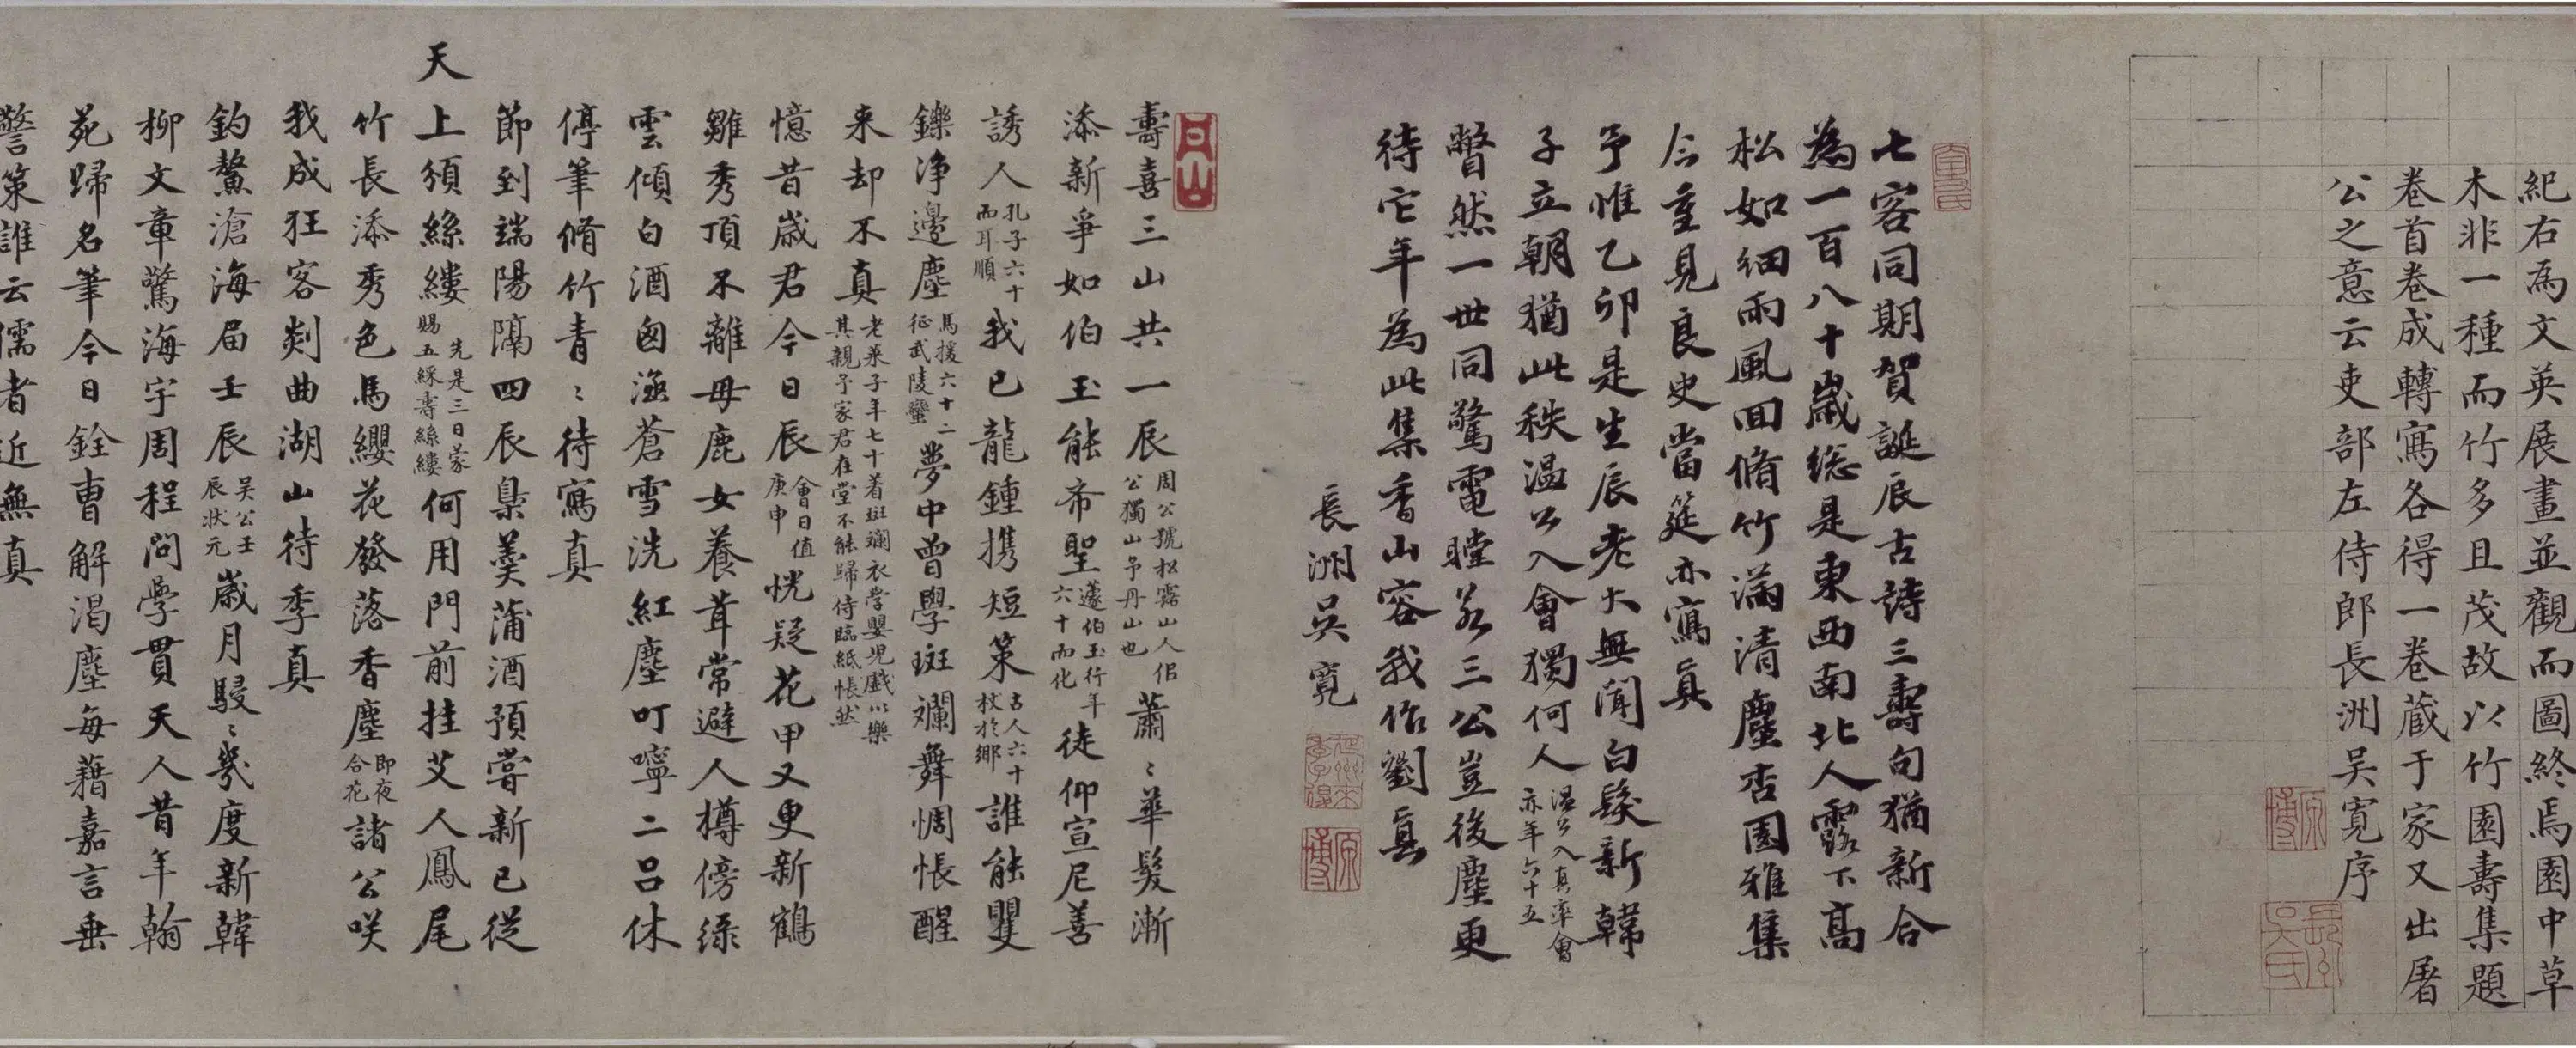 紀右為文英展畫並觀而圖終焉園中草
木非一種而竹多且茂故以竹園壽集題
卷首卷成轉寫各得一卷蔵于家又出屠
公之意云吏部左侍郎長洲吴寬序
七客同期賀誕辰古詩三壽句猶新合
為一百八十歲総是東西南北人露下高
松如細雨風回脩竹滿清塵杏園雅集
今重見良史當筵亦寫真
予惟乙卯是生辰老大無聞白髮新韓
子立朝猶此秩温公入會獨何人
温公入真率會
亦年六十五
瞥然一世同驚電瞠若三公豈後塵更
待它年為此集香山容我作劉真
長洲吳寬
原博
壽喜三山共一辰
周公號松露山人佀
公獨山予丹山也
蕭〻華髮漸
添新爭如伯玉能希聖
蘧伯玉行年
六十而化
徒仰宣尼善
誘人
孔子六十
而耳順
我已龍鍾携短策
古人六十
杖於鄉
誰能矍
鑠浄邊塵
馬援六十二
征武陵蠻
夢中曾學斑斕舞惆悵醒
来却不真
老萊子年七十着斑斕衣学嬰児戲以樂
其親予家君在堂不能歸侍臨紙悵然
憶昔歲君今日辰
會日值
庚申
恍疑花甲又更新鶴
雛秀頂不離母鹿女養茸常避人樽傍綠
雲傾白酒囪涵蒼雪洗紅塵叮嚀二吕休
停筆脩竹青〻待寫真
節到端陽隔四辰梟羹蒲酒預嘗新已從
天
上頒絲縷
先是三日蒙
賜五綵壽絲縷
何用門前挂艾人鳳尾
竹長添秀色馬纓花發落香塵
即夜
合花
諸公咲
我成狂客剡曲湖山待季真
釣鰲滄海屇壬辰
吴公壬
辰状元
歲月駸〻幾度新韓
柳文章驚海宇周程問學貫天人昔年翰
苑歸名筆今日銓曹解渴塵每藉嘉言垂
警策誰云儒者近無真